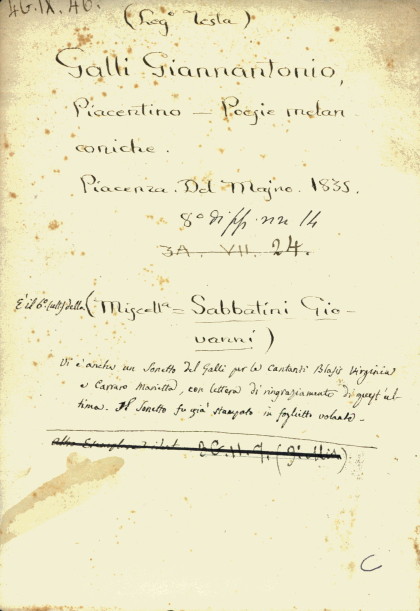 4G.IX.40.
(Leg° Testa)
Galli Giannantonio,
Piacentino — Poesie melan-
coniche.
Piacenza. Del Majno. 1835.
8° di pp. 14
3A. VII. 24.
È il 6° della (Miscella = Sabbatini Gio-
vanni)
Vi è anche un Sonetto del Galli per le Cantanti Blasis Virginia
e Carraro Marietta, con lettera di ringraziamento di quest'ul-
tima. Il Sonetto fu già stampato in foglietto volante.
2G.II.9.
C